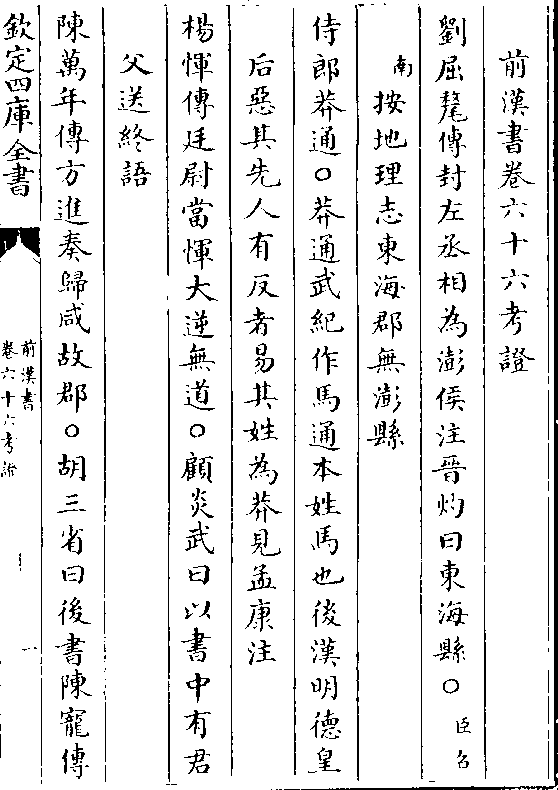 前漢書卷六十六考證
劉屈氂傳封左丞相為澎侯注晉灼曰東海縣○臣召
南按地理志東海郡無澎縣
侍郎莽通○莽通武紀作馬通本姓馬也後漢明德皇
后惡其先人有反者易其姓為莽見孟康注
楊惲傳廷尉當惲大逆無道○顧炎武曰以書中有君
父送終語
陳萬年傳方進奏歸咸故郡○胡三省曰後書陳寵傳
欽定四庫全書
前漢書
卷六十六考證
一